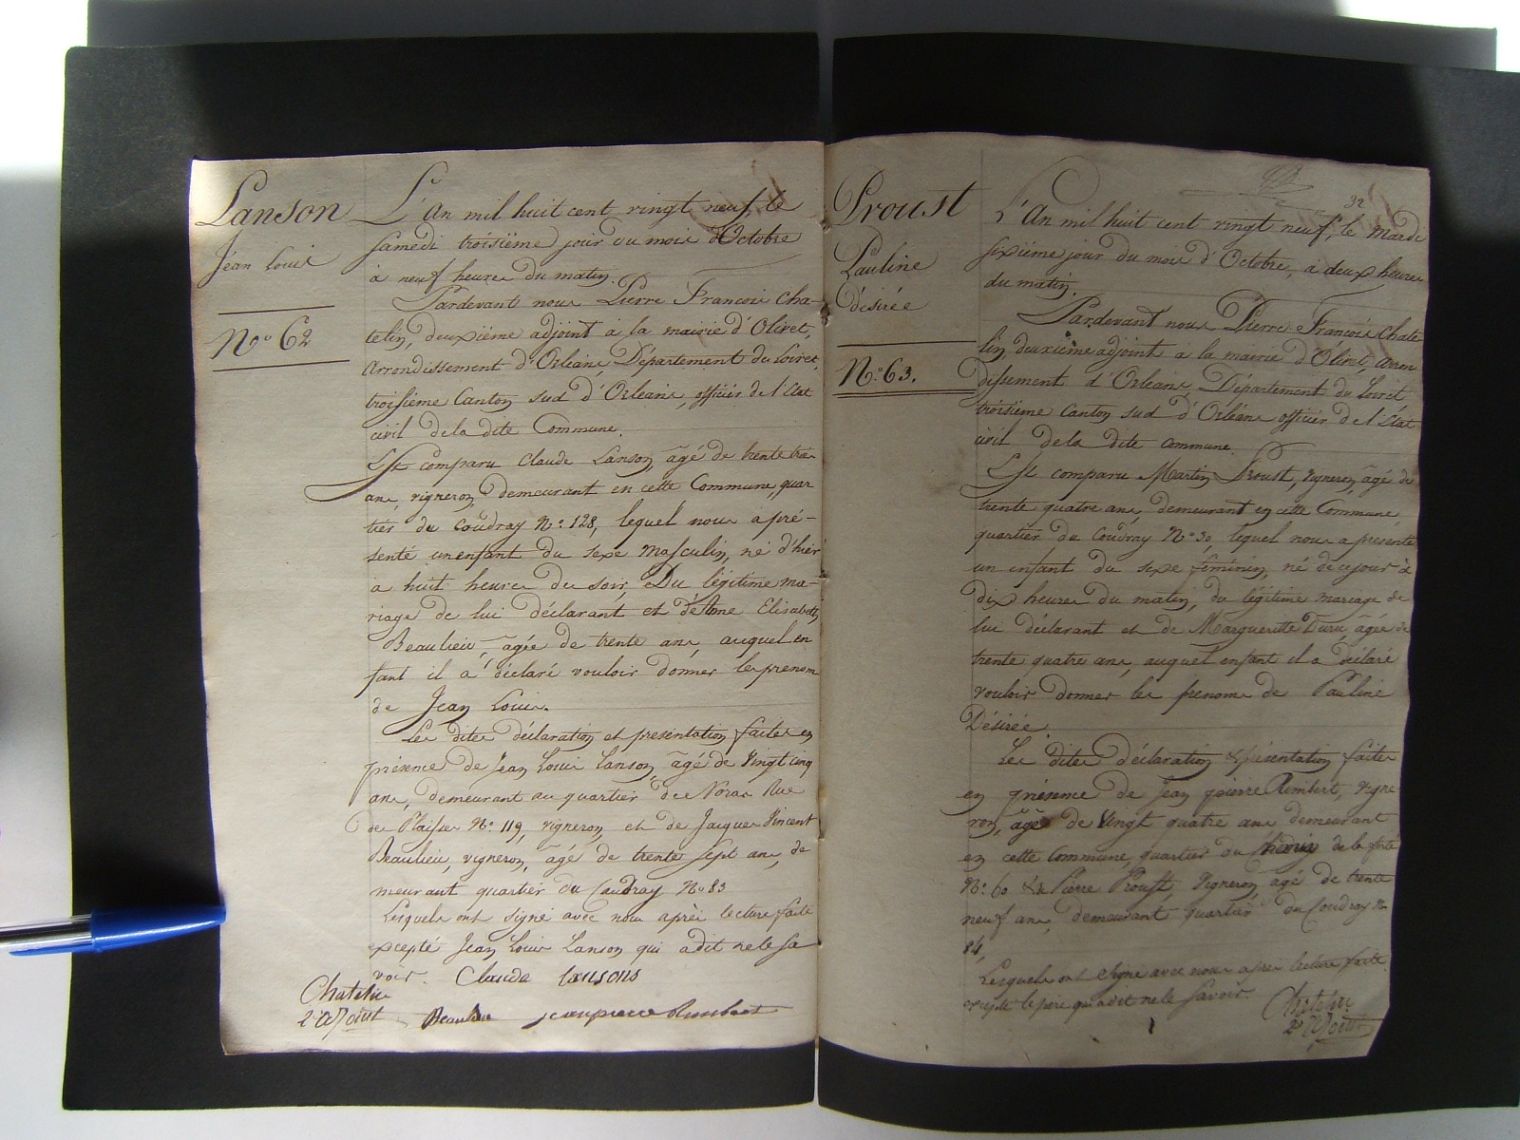 Lanson
Jean Louis
No. 62
L'An mil huit cent vingt neuf, le
samedi troisième jour du mois d'Octobre
à neuf heures du matin.
Pardevant nous Pierre Francois Cha-
telin, deuxième adjoint à la mairie d'Olivet,
Arrondissement d'Orléans, Département du Loiret,
troisième Canton sud d'Orléans, officier de l'état
civil de la dite Commune.
Est comparu Claude Lanson, âgé de trente trois
ans, vigneron, demeurant en cette Commune, quar
tier du Coudray No. 128, lequel nous a pré-
senté un enfant du sexe masculin, né d'hier
à huit heures du soir, Du légitime ma-
riage de lui déclarant et d'Anne Elisabeth
Beaulieu, âgée de trente ans, auquel en
fant il a déclaré vouloir donner les prenoms
de Jean Louis.
Les dites déclaration et presentation faites en
présence de Jean Louis Lanson, âgé de Vingt cinq
ans, demeurant au quartier des Noras Rue
de Plaisse No. 119, vigneron, et de Jacques Vincent
Beaulieu, vigneron, âgé de trente sept ans, de
meurant quartier du Caudray No. 83
Lesquels ont signé avec nous après lecture faite
excepté Jean Louis Lanson qui a dit ne le sa
voir. Claude Lansons
Chatelin
2e adjoint Beaulieu jean pierre Rimbert
32
Proust
Pauline
désirée
No. 63.
L'An mil huit cent vingt neuf, le Mardi
sixième jour du mois d'Octobre, à deux heures
du matin.
Pardevant nous Pierre Francois Chate
lin, deuxième adjoint à la mairie d'Olivet, Arron
dissement d'Orléans, Département du Loiret
troisième Canton sud d'Orléans officier de l'état
civil de la dite commune.
Est comparu Martin Proust, vigneron, âgé de
trente quatre ans, demeurant en cette Commune
quartier du Coudray No. 30 lequel nous a présenté
un enfant du sexe féminin, né de ce jour à
dix heures du matin, du légitime mariage de
lui déclarant et de Margueritte Duru, agée de
trente quatre ans, auquel enfant il a déclaré
vouloir donner les prenoms de Pauline
Désirée.
Les dites déclaration & présentation faites
en présence de Jean pierre Rimbert, vigne
ron, âgé de Vingt quatre ans demeurant
en cette Commune, quartier du Chemin de la ferté
No. 60 & de Pierre Proust, Vigneron, âgé de trente
neuf ans, demeurant quartier du Coudray No
84,
Lesquels ont signé avec nous après lecture faite
excepté le père qui a dit ne le savoir.
Chatelin
2e adjoint